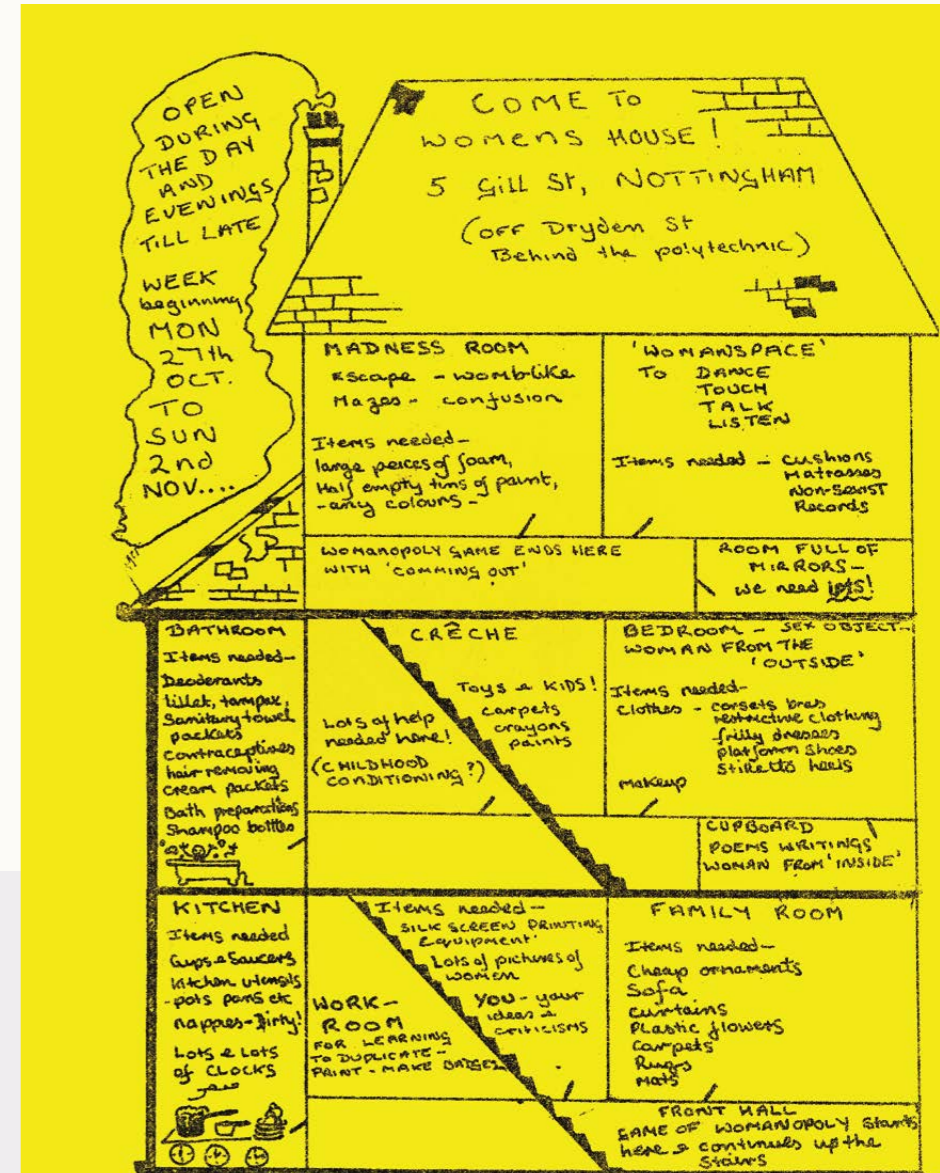 OPEN
DURING
THE DAY
AND
EVENINGS
TILL LATE
WEEK
beginning
MON
27th
OCT.
TO
SUN
2nd
NOV....
COME TO
WOMENS HOUSE!
5 Gill St, NOTTINGHAM
(OFF Dryden St
Behind the polytechnic)
MADNESS ROOM
Escape - womb-like
Mazes - confusion
Items needed -
large peices of foam,
Half empty tins of paint,
- any colours -
'WOMANSPACE'
TO DANCE
TOUCH
TALK
LISTEN
Items needed - Cushions
Matrasses
Non-Sexist
Records
WOMANOPOLY GAME ENDS HERE
WITH 'COMMING OUT'
ROOM FULL OF
MIRRORS -
we need lots!
BATHROOM
Items needed -
Deoderants
lillet, tampax,
Sanitary towel
packets
contraceptives
hair removing
cream packets
Bath preparations
Shampoo bottles
CRÊCHE
Toys & KIDS!
carpets
crayons
paints
Lots of help
needed here!
(CHILDHOOD
CONDITIONING?)
BEDROOM - SEX OBJECT -
WOMAN FROM THE
'OUTSIDE'
Items needed -
Clothes - corsets bras
restrictive clothing
frilly dresses
platform shoes
Stiletto heels
Makeup
CUPBOARD
POEMS WRITINGS
WOMAN FROM 'INSIDE'
KITCHEN
Items needed
Cups & Saucers
Kitchen utensils
- pots pans etc
nappies - Dirty!
Lots & Lots
of CLOCKS
Items needed -
SILK SCREEN PRINTING
Equipment
Lots of pictures of
women
YOU - your
ideas &
criticisms
WORK -
ROOM
FOR LEARNING
TO DUPLICATE -
PRINT - MAKE BADGES
FAMILY ROOM
Items needed -
Cheap ornaments
Sofa
curtains
Plastic flowers
Carpets
Rugs
Mats
FRONT HALL
GAME OF WOMANOPOLY Starts
here & continues up the
Stairs